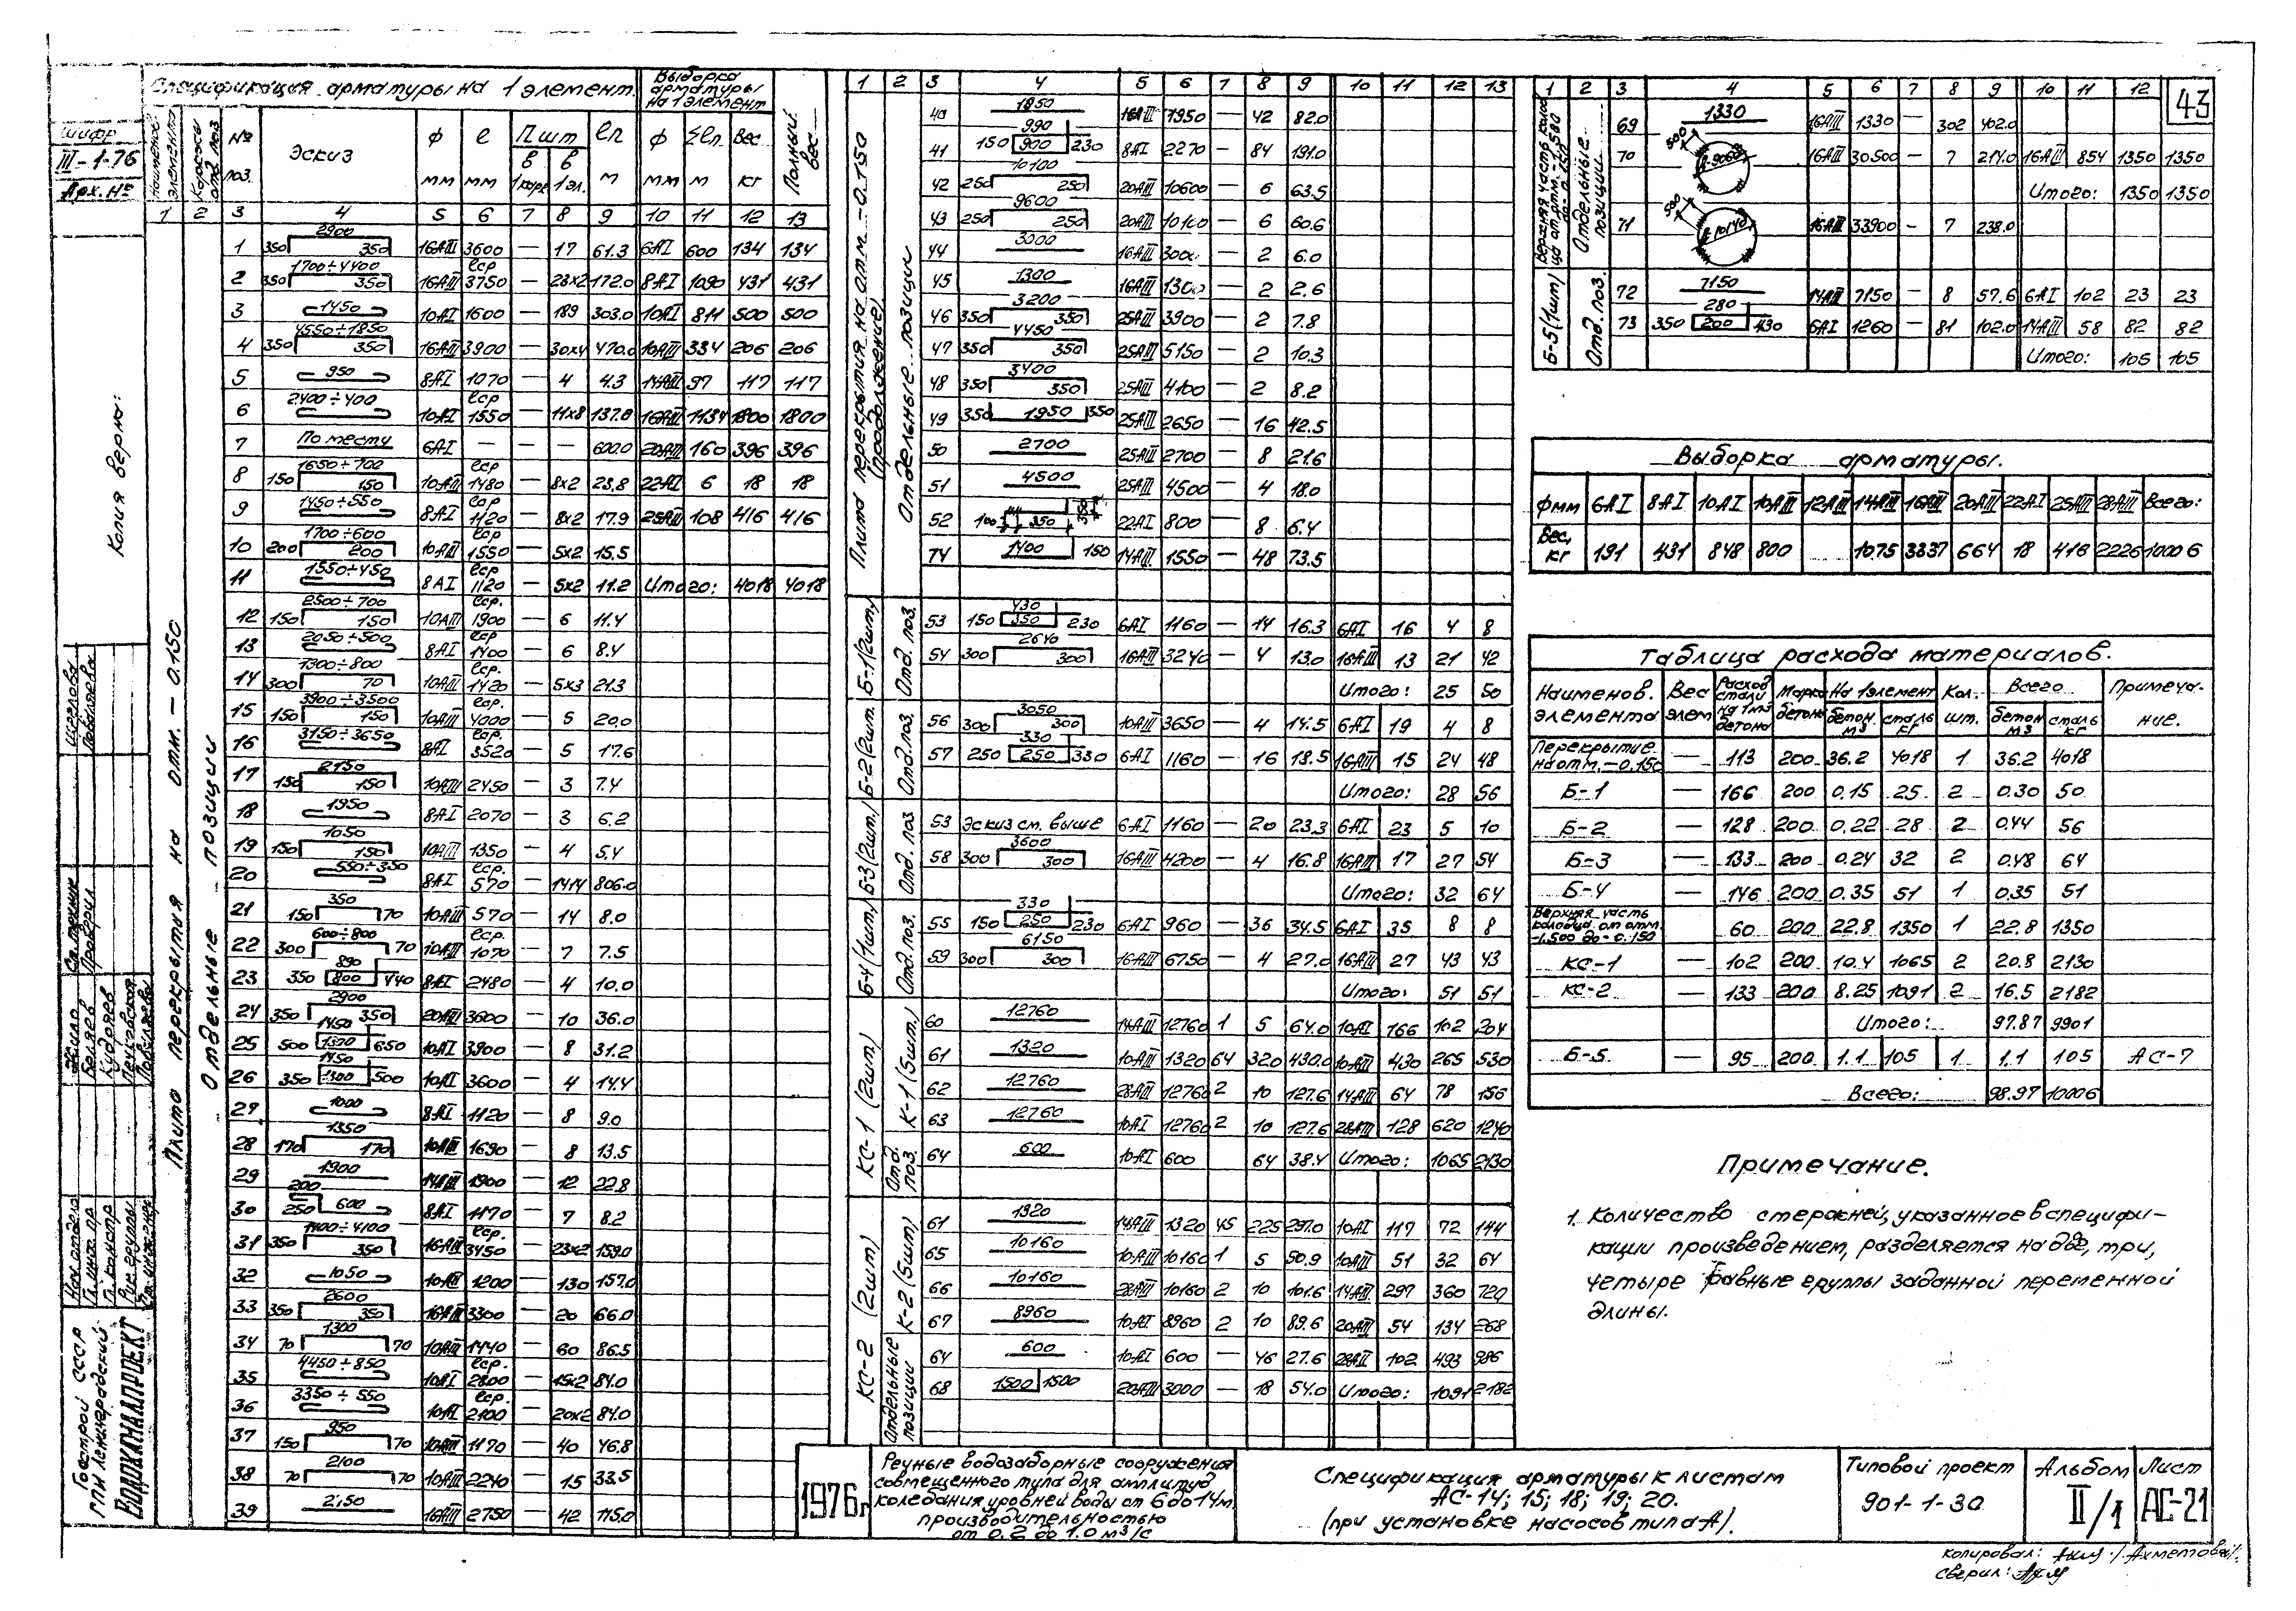 43
Шифр
III-1-76
Арх. №
Копия верна:
Спецификация арматуры на 1 элемент.
Выборка арматуры на 1 элемент
Полный вес
Наименов. элемента
№ поз.
Эскиз
ф мм
ℓ мм
n шт
в 1 карк.
в 1 эл.
ℓn м
ф мм
Σℓn м
Вес кг
1 2 3 4 5 6 7 8 9 10 11 12 13
Плита перекрытия на отм. -0.150
Отдельные позиции
1 350 2900 350 16АIII 3600 — 17 61.3 6АI 600 134 134
2 350 1700÷4400 350 16АIII ℓср 3750 — 23х2 172.0 8АI 1090 431 431
3 1450 10АI 1600 — 189 303.0 10АI 811 500 500
4 350 4550÷1850 350 16АIII 3900 — 30х4 470.0 10АIII 334 206 206
5 950 8АI 1070 — 4 4.3 14АIII 97 117 117
6 2400÷400 10АI ℓср 1550 — 11х8 137.0 16АIII 1134 1800 1800
7 По месту 6АI — — — 600.0 20АIII 160 396 396
8 150 1650÷700 150 10АIII ℓср 1480 — 8х2 23.8 22АI 6 18 18
9 1450÷550 8АI ℓср 1120 — 8х2 17.9 25АIII 108 416 416
10 200 1700÷600 200 10АIII ℓср 1550 — 5х2 15.5
11 1550÷450 8АI ℓср 1120 — 5х2 11.2 Итого: 4018 4018
12 150 2500÷700 150 10АIII ℓср. 1900 — 6 11.4
13 2050÷500 8АI ℓср 1400 — 6 8.4
14 300 1300÷800 70 10АIII ℓср. 1420 — 5х3 21.3
15 150 3900÷3500 150 10АIII ℓср. 4000 — 5 20.0
16 3150÷3650 8АI ℓср. 3520 — 5 17.6
17 150 2150 150 10АIII 2450 — 3 7.4
18 1950 8АI 2070 — 3 6.2
19 150 1050 150 10АIII 1350 — 4 5.4
20 550÷350 8АI ℓср. 570 — 1414 806.0
21 150 350 70 10АIII 570 — 14 8.0
22 300 600÷800 70 10АIII ℓср. 1070 — 7 7.5
23 350 890 800 440 8АI 2480 — 4 10.0
24 350 2900 350 20АIII 3600 — 10 36.0
25 500 1450 1370 650 10АI 3900 — 8 31.2
26 350 1450 1300 500 10АI 3600 — 4 14.4
27 1000 8АI 1120 — 8 9.0
28 170 1350 170 10АIII 1690 — 8 13.5
29 1900 14АIII 1900 — 12 22.8
30 200 250 600 8АI 1170 — 7 8.2
31 350 1400÷4100 350 16АIII ℓср. 3450 — 23х2 159.0
32 1050 10АI 1200 — 130 157.0
33 350 2600 350 16АIII 3300 — 20 66.0
34 70 1300 70 10АIII 1440 — 60 86.5
35 4450÷850 10АI ℓср. 2800 — 15х2 84.0
36 3350÷550 10АI ℓср. 2100 — 20х2 84.0
37 150 950 70 10АIII 1170 — 40 46.8
38 70 2100 70 10АIII 2240 — 15 33.5
39 16АIII 2750 — 42 115.0
1 2 3 4 5 6 7 8 9 10 11 12 13
Плита перекрытия на отм. -0.150 (продолжение)
Отдельные позиции
40 1950 16АIII 1950 — 42 82.0
41 150 990 900 230 8АI 2270 — 84 191.0
42 250 10100 250 20АIII 10600 — 6 63.5
43 250 9600 250 20АIII 10100 — 6 60.6
44 3000 16АIII 3000 — 2 6.0
45 1300 16АIII 1300 — 2 2.6
46 350 3200 350 25АIII 3900 — 2 7.8
47 350 4450 350 25АIII 5150 — 2 10.3
48 350 3400 350 25АIII 4100 — 2 8.2
49 350 1950 350 25АIII 2650 — 16 42.5
50 2700 25АIII 2700 — 8 21.6
51 4500 25АIII 4500 — 4 18.0
52 100 350 22АI 800 — 8 6.4
74 1400 150 14АIII 1550 — 48 73.5
Б-1 (2шт) Отд. поз.
53 150 430 350 230 6АI 1160 — 14 16.3 6АI 16 4 8
54 300 2640 300 16АIII 3240 — 4 13.0 16АIII 13 21 42
Итого: 25 50
Б-2 (2шт.) Отд. поз.
56 300 3050 300 10АIII 3650 — 4 14.5 6АI 19 4 8
57 250 330 250 330 6АI 1160 — 16 18.5 16АIII 15 24 48
Итого: 28 56
Б-3 (2шт.) Отд. поз
53 Эскиз см. выше 6АI 1160 — 20 23.3 6АI 23 5 10
58 300 3600 300 16АIII 4200 — 4 16.8 16АIII 17 27 54
Итого: 32 64
Б-4 (1шт.) Отд. поз.
55 150 330 250 230 6АI 960 — 36 34.5 6АI 35 8 8
59 300 6150 300 16АIII 6750 — 4 27.0 16АIII 27 43 43
Итого: 51 51
КС-1 (2шт) К-1 (5шт.) Отд. поз.
60 12760 14АIII 12760 1 5 64.0 10АI 166 102 204
61 1320 10АIII 1320 64 320 430.0 10АIII 430 265 530
62 12760 28АIII 12760 2 10 127.6 14АIII 64 78 156
63 12760 10АI 12760 2 10 127.6 28АIII 128 620 1240
64 600 10АI 600 64 38.4 Итого: 1065 2130
КС-2 (2шт) К-2 (5шт) Отдельные позиции
61 1320 14АIII 1320 45 225 297.0 10АI 117 72 144
65 10160 10АIII 10160 1 5 50.9 10АIII 51 32 64
66 10160 28АIII 10160 2 10 101.6 14АIII 297 360 720
67 8960 10АI 8960 2 10 89.6 20АIII 54 134 268
64 600 10АI 600 — 46 27.6 28АIII 102 493 986
68 1500 1500 20АIII 3000 — 18 54.0 Итого: 1091 2182
1 2 3 4 5 6 7 8 9 10 11 12
Верхняя часть колодца от отм. -1.500 до -0.150
Отдельные позиции
69 1330 16АIII 1330 — 302 402.0
70 500 16АIII 30500 — 7 214.0 16АIII 854 1350 1350
Итого: 1350 1350
71 500 16АIII 33900 — 7 238.0
Б-5 (1шт) Отд. поз.
72 7150 14АIII 7150 — 8 57.6 6АI 102 23 23
73 350 280 200 430 6АI 1260 — 81 102.0 14АIII 58 82 82
Итого: 105 105
Выборка арматуры.
ф мм 6АI 8АI 10АI 10АIII 12АIII 14АIII 16АIII 20АIII 22АI 25АIII 28АIII Всего:
Вес, кг 191 431 848 800 1075 3337 664 18 416 2226 10006
Таблица расхода материалов.
Наименов. элемента
Вес элем
Расход стали на 1м3 бетона
Марка бетона
На 1 элемент
бетон. м3
сталь кг
Кол. шт.
Всего
бетон м3
сталь кг
Примечание.
Перекрытие на отм. -0.150 — 113 200 36.2 4018 1 36.2 4018
Б-1 — 166 200 0.15 25 2 0.30 50
Б-2 — 128 200 0.22 28 2 0.44 56
Б-3 — 133 200 0.24 32 2 0.48 64
Б-4 — 146 200 0.35 51 1 0.35 51
Верхняя часть колодца от отм. -1.500 до -0.150 60 200 22.8 1350 1 22.8 1350
КС-1 — 102 200 10.4 1065 2 20.8 2130
КС-2 — 133 200 8.25 1091 2 16.5 2182
Итого: 97.87 9901
Б-5 — 95 200 1.1 105 1 1.1 105 АС-7
Всего: 98.97 10006
Примечание.
1. Количество стержней, указанное в специфи-
кации произведением, разделяется на две, три,
четыре равные группы заданной переменной
длины.
Госстрой СССР
ГПИ Ленинградский
ВОДОКАНАЛПРОЕКТ
1976г
Речные водозаборные сооружения
совмещенного типа для амплитуд
колебания уровней воды от 6 до 14м.
производительностью
от 0.2 до 1.0 м3/с
Спецификация арматуры к листам
АС-14; 15; 18; 19; 20.
(при установке насосов типа А).
Типовой проект
901-1-30
Альбом
II/1
Лист
АС-21
Копировал: Ахметова
Сверил: